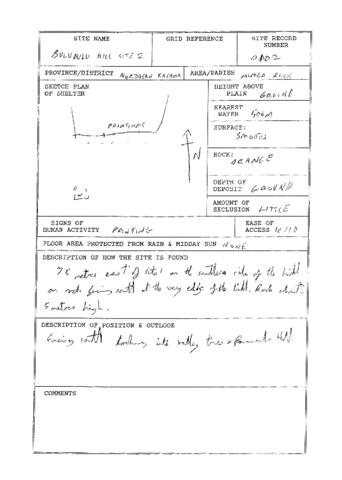 SITE NAME
GRID REFERENCE
SITE RECORD
NUMBER
BULUBULU HILL SITE 2
0002
PROVINCE/DISTRICT NORTHERN KADUNA
AREA/PARISH
SKETCH PLAN
OF SHELTER
PAINTINGS
N
HEIGHT ABOVE
PLAIN GROUND
NEAREST
WATER 500M
SURFACE:
SMOOTH
ROCK:
ORANGE
DEPTH OF
DEPOSIT GROUND
AMOUNT OF
SECLUSION LITTLE
SIGNS OF
HUMAN ACTIVITY PAINTING
EASE OF
ACCESS 10/10
FLOOR AREA PROTECTED FROM RAIN & MIDDAY SUN NONE
DESCRIPTION OF HOW THE SITE IS FOUND
75 metres east of site 1 on the southern side of the hill
on rock facing south at the very edge of the hill. Rock about
5 metres high.
DESCRIPTION OF POSITION & OUTLOOK
facing south looking into valley
COMMENTS